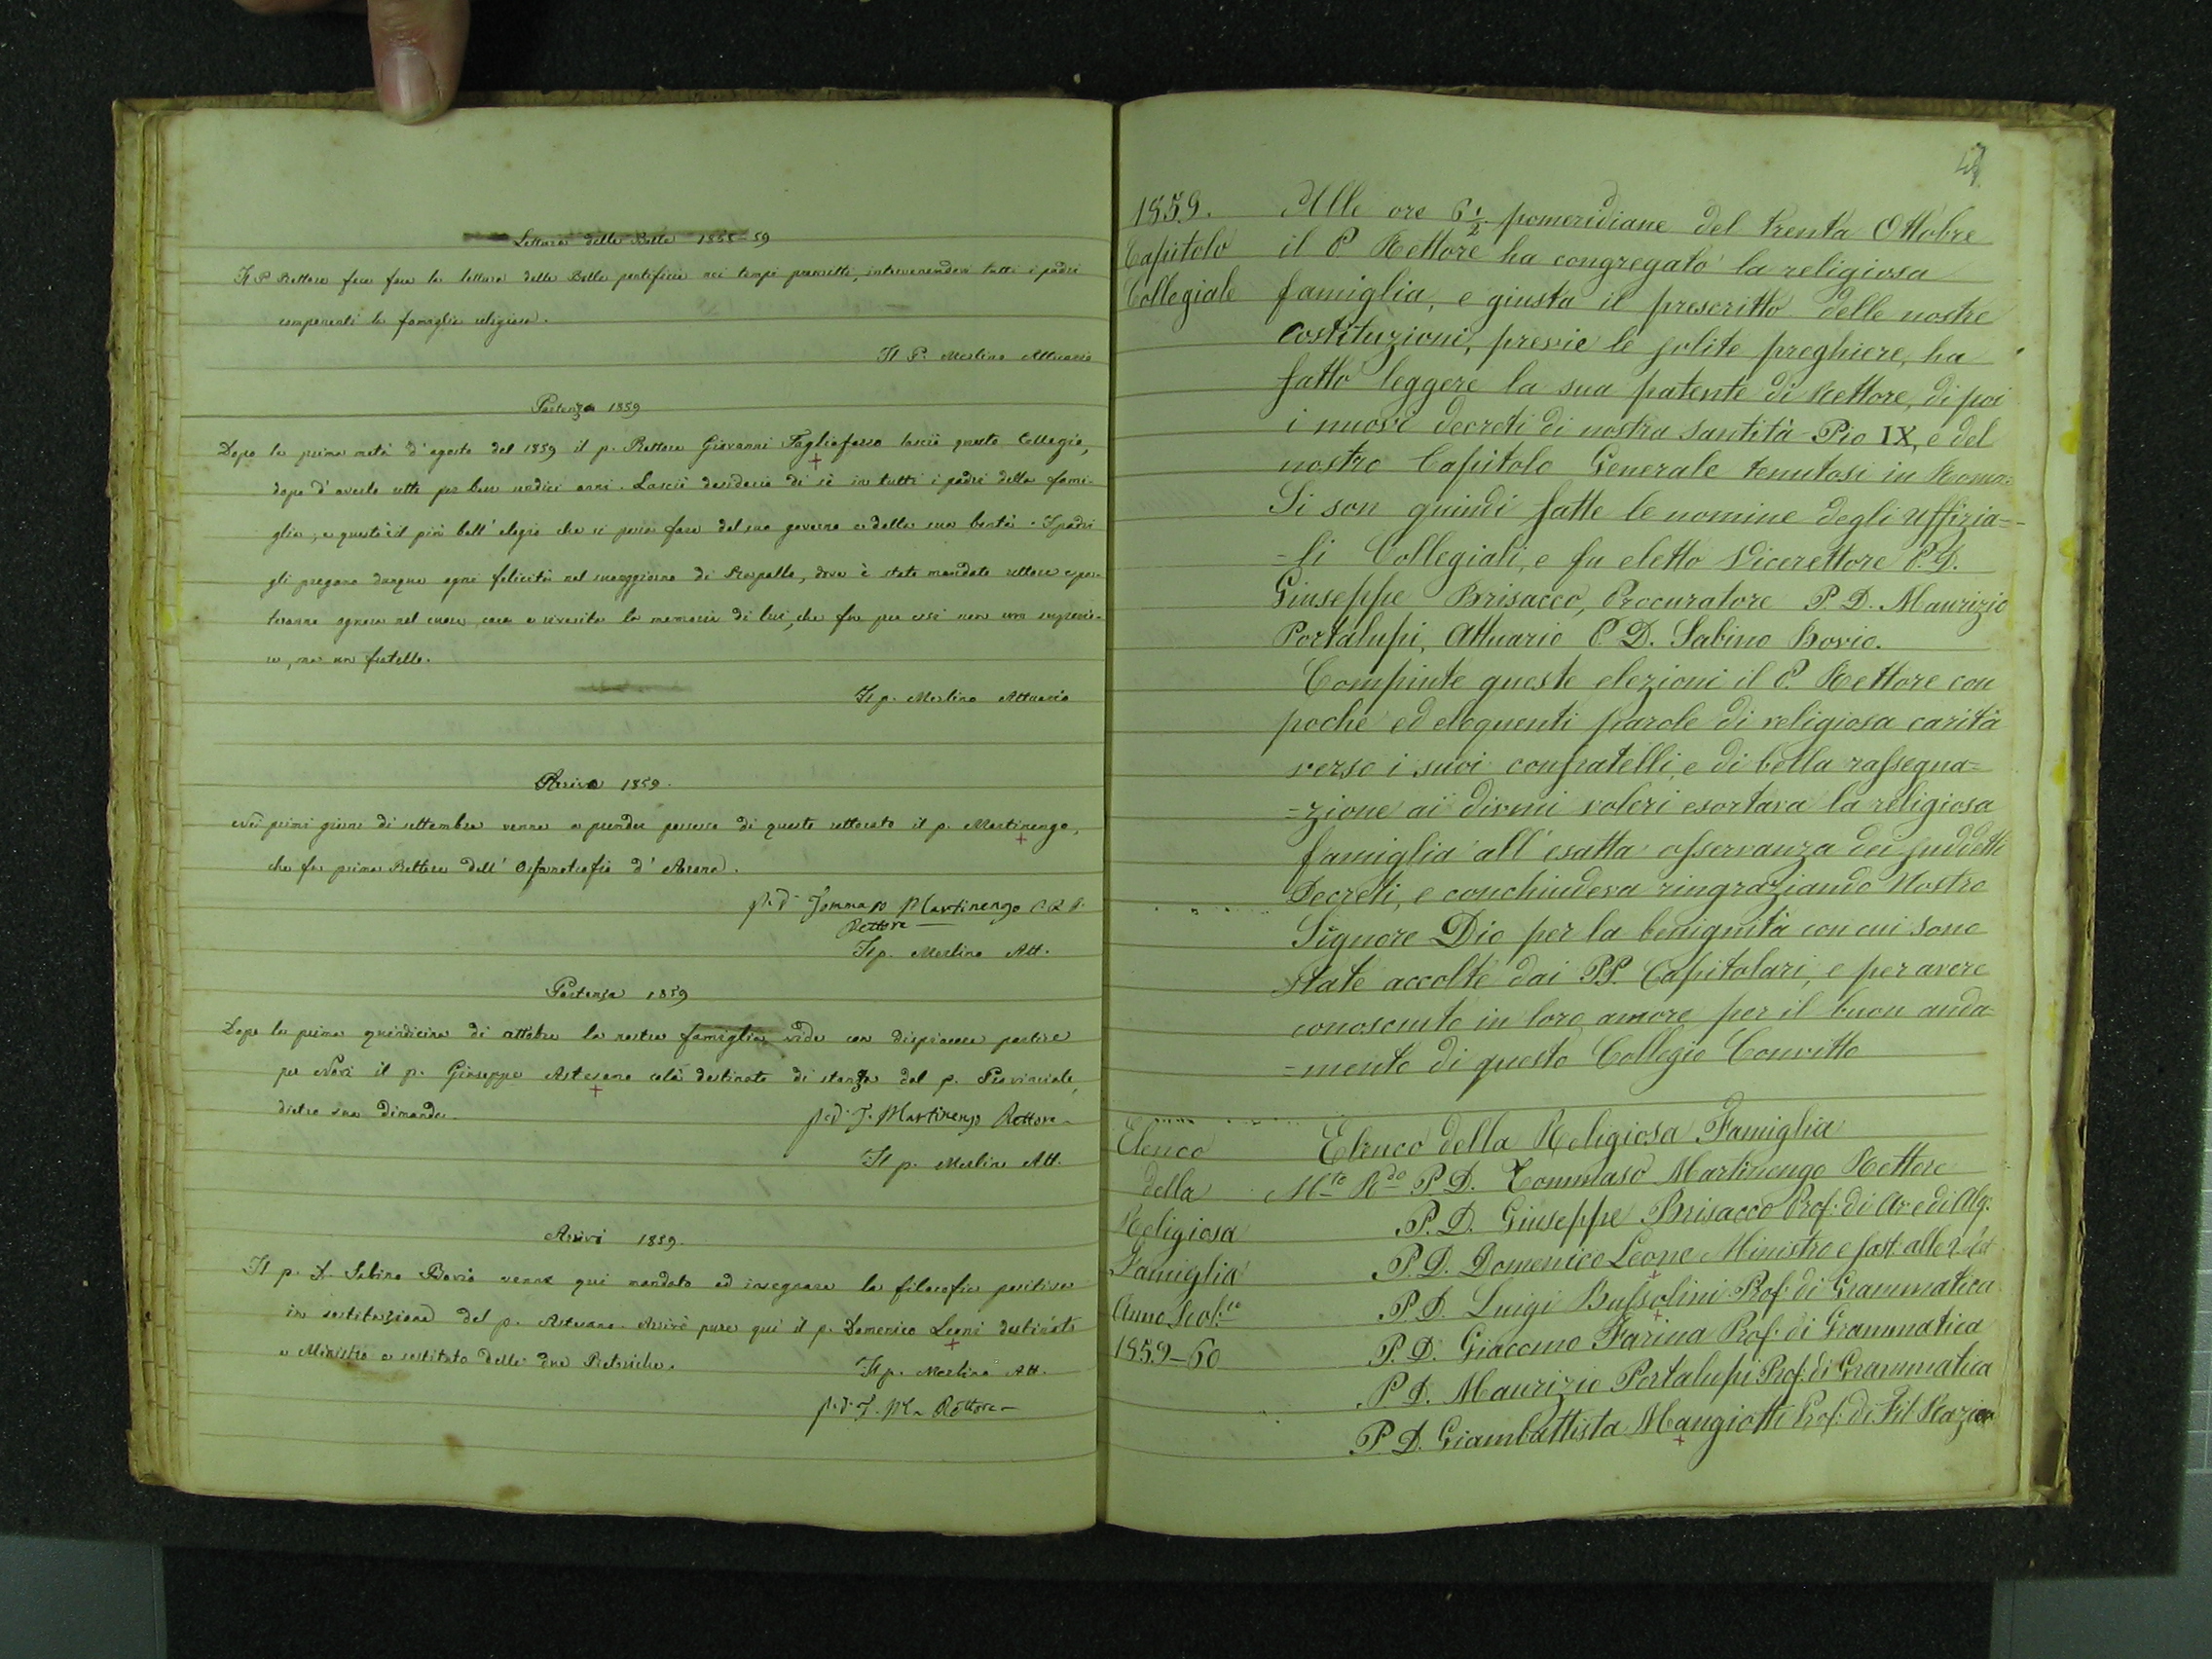 Lettura delle Bolle 1858-59
Il P. Rettore fece fare la lettura delle Bolle pontificie nei tempi prescritti, intervenendovi tutti i padri
componenti la famiglia religiosa.
Il P. Merlino Attuario
Partenza 1859
Dopo la prima metà d'agosto del 1859 il p. Rettore Giovanni Tagliaferro lasciò questo Collegio,
dopo d'averlo retto per ben undici anni. Lasciò desiderio di sè in tutti i padri della fami-
glia, e questo è il più bell'elogio che si possa fare del suo governo e della sua bontà. I padri
gli pregano dunque ogni felicità nel suo soggiorno di Rapallo, dove è stato mandato rettore e por-
teranno ognora nel cuore cara e riverita la memoria di lui, che fu per essi non un superio-
re, ma un fratello.
Il p. Merlino Attuario
Arrivo 1859.
Nei primi giorni di settembre venne a prender possesso di questo rettorato il p. Martinengo,
che fu prima Rettore dell'Orfanotrofio d'Arona.
p. d. Tommaso Martinengo C.R.S.
Rettore
Il p. Merlino Att.
Partenza 1859
Dopo la prima quindicina di ottobre la nostra famiglia vide con dispiacere partire
per Novi il p. Giuseppe Astesano colà destinato di stanza dal p. Provinciale,
dietro sua dimanda.
p. d. T. Martinengo Rettore
Il p. Merlino Att.
Arrivi 1859.
Il p. D. Sabino Bovio venne qui mandato ad insegnare la filosofia positiva
in sostituzione del p. Astesano. Arrivò pure qui il p. Domenico Leoni destinato
a Ministro e sostituto delle due Rettoriche.
Il p. Merlino Att.
p. d. T. M. Rettore
1859. Alle ore 6 1/2 pomeridiane del trenta Ottobre
Capitolo il P. Rettore ha congregato la religiosa
Collegiale famiglia, e giusta il prescritto delle nostre
costituzioni, previe le solite preghiere, ha
fatto leggere la sua patente di Rettore, di poi
i nuovi decreti di nostra Santità Pio IX, e del
nostro Capitolo Generale tenutosi in Roma.
Si son quindi fatte le nomine degli Uffizia=
=li Collegiali, e fu eletto Vicerettore P. D.
Giuseppe Brisacco, Procuratore P. D. Maurizio
Portalupi, Attuario P. D. Sabino Bovio.
Compiute queste elezioni il P. Rettore con
poche ed eloquenti parole di religiosa carità
verso i suoi confratelli e di bella rassegna=
=zione ai divini voleri esortava la religiosa
famiglia all'esatta osservanza dei suddetti
Decreti, e conchiudeva ringraziando Nostro
Signore Dio per la benignità con cui sono
state accolte dai PP. Capitolari, e per avere
conosciuto in loro amore per il buon anda
=mento di questo Collegio Convitto
Elenco Elenco della Religiosa Famiglia
della M.to R.do P. D. Tommaso Martinengo Rettore
Religiosa P. D. Giuseppe Brisacco Prof. di Ar. e di Alg.
Famiglia P. D. Domenico Leone Ministro e sost. alle 2
Anno Scol.co P. D. Luigi Bussolini Prof. di Grammatica
1859-60 P. D. Giacomo Farina Prof. di Grammatica
P. D. Maurizio Portalupi Prof. di Grammatica
P. D. Giambattista Mangiotti Prof. di Fil. Razion